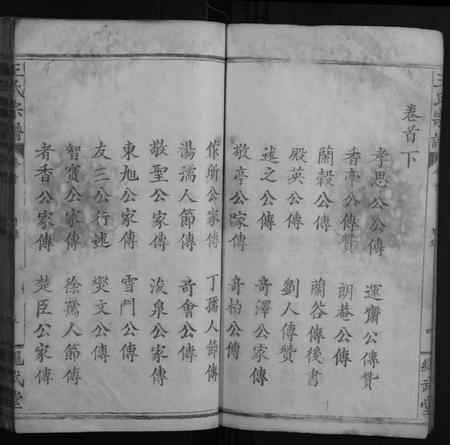 卷首下
孝思公公傳 運齋公傳贊
香亭公傳贊 朗菴公傳
蘭穀公傳 蘭谷傳後書
殿英公傳 劉人傳贊
述之公傳 奇澤公家傳
敬亭公家傳 奇柏公傳
作所公家傳 丁孺人節傳
湯孺人節傳 奇會公傳
敬聖公家傳 浚泉公家傳
東旭公家傳 雪門公傳
友三公行述 燮文公傳
智寶公家傳 徐孺人節傳
者香公家傳 楚臣公家傳
王氏宗譜
繩武堂